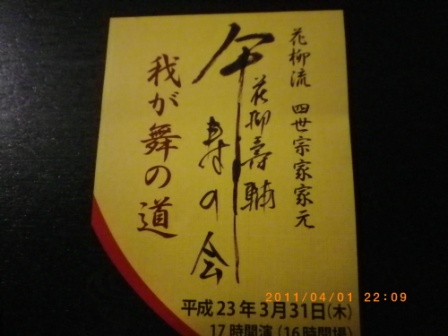 花柳流 四世宗家家元
花柳壽輔
傘寿の会
我が舞の道
平成23年3月31日(木)
17時開演(16時開場)
2011/04/01 22:09